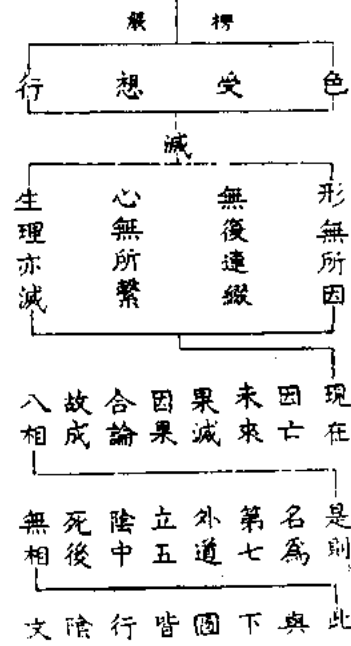 楞嚴
色受想行
滅
形無所因
無復連綴
心無所繫
生理亦滅
現在
因亡
未來
果滅
因果
合論
故成
八相
是則
名為
第七
外道
立五
陰中
死後
無相
此與下圖皆行陰文